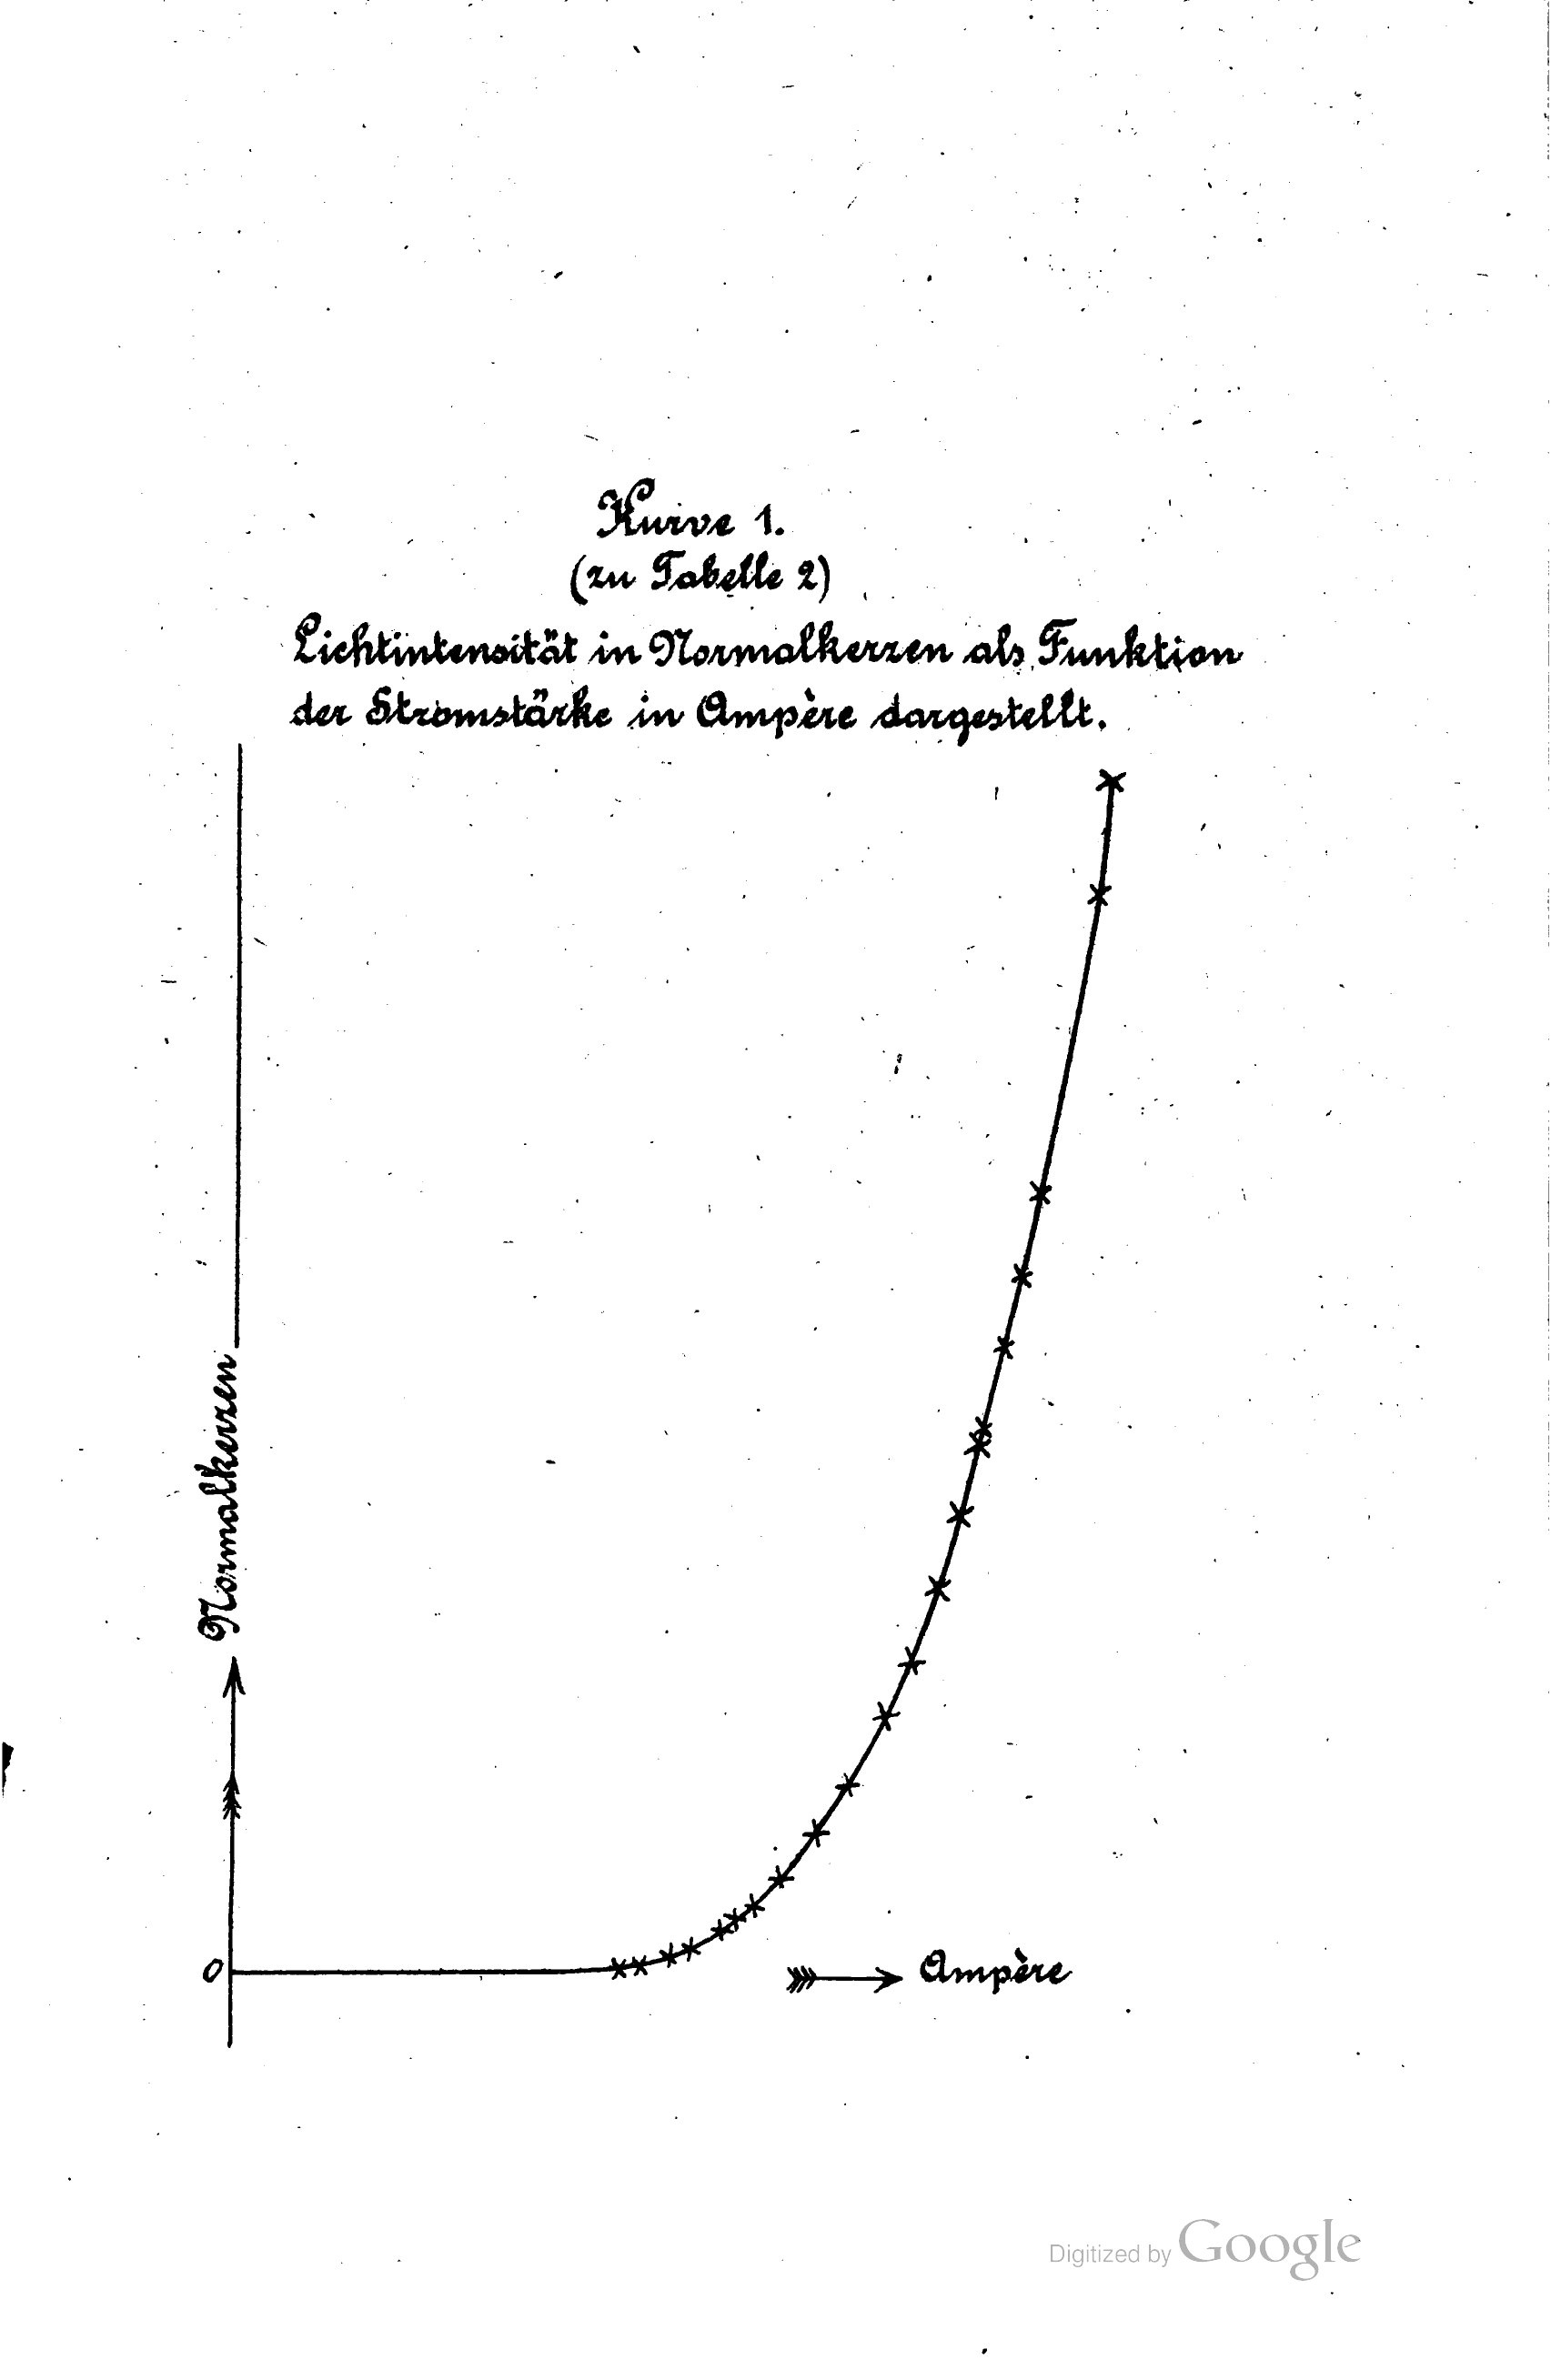 Kurve 1.
(zu Tabelle 2)
Lichtintensität in Normalkerzen als Funktion
der Stromstärke in Ampère dargestellt.
Normalkerzen
0
Ampère
Digitized by Google